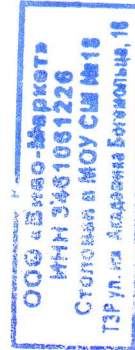 ООО «Виво-Маркет»
ИНН 3461061226
Столовая в МОУ СШ №18
ТЗР ул. им Академика Богомольца, 16